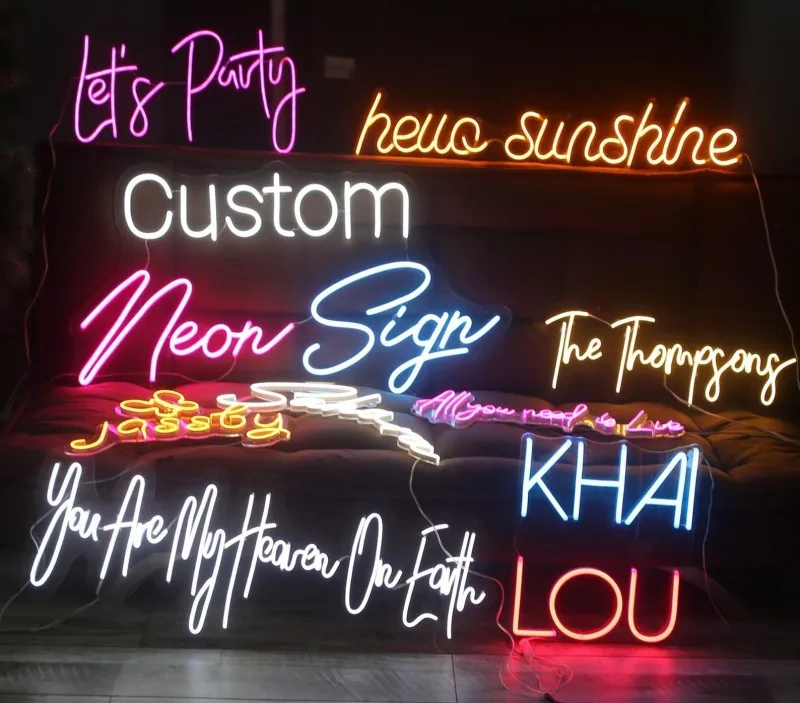 Let's Party
hello sunshine
Custom
Neon Sign
The Thompsons
Jassby
All you need is Love
You Are My Heaven On Earth
KHAI
LOU